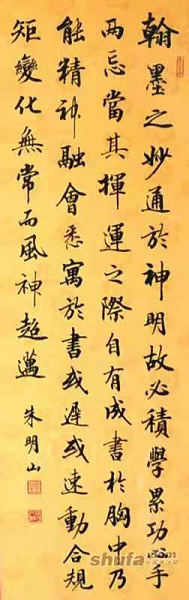 翰墨之妙通於神明故必積學累功心手
兩忘當其揮運之際自有成書於胸中乃
能精神融會悉寓於書或遲或速動合規
矩變化無常而風神超邁
朱明山